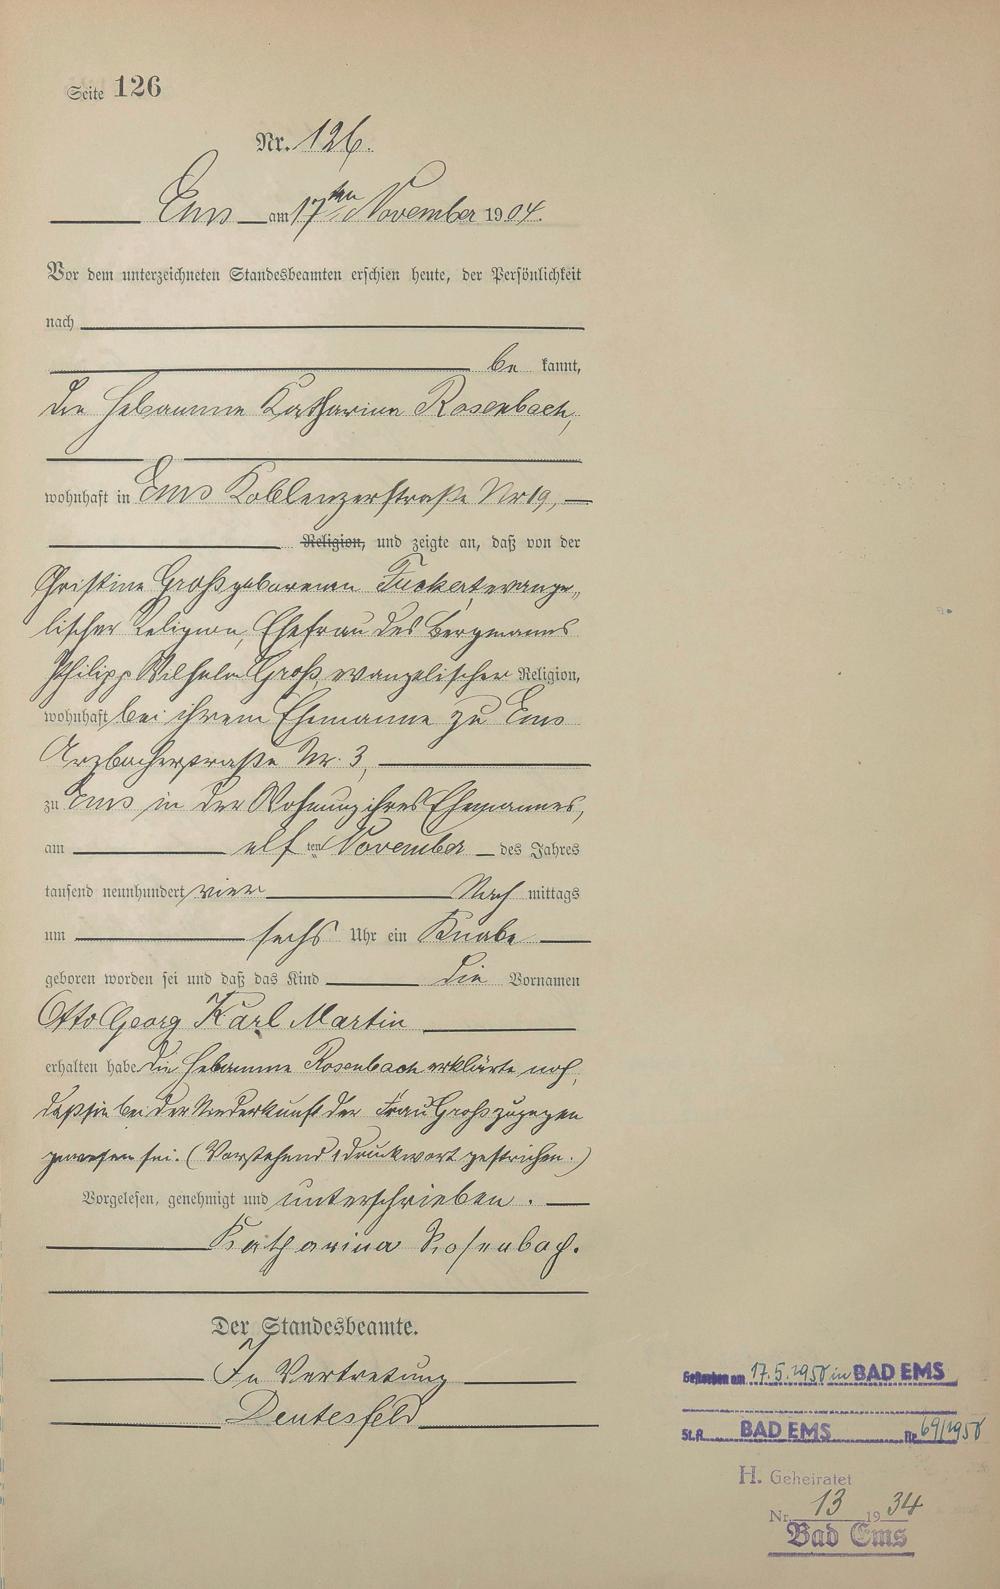 Seite 126
Nr. 126.
Ems am 17ten November 1904.
Vor dem unterzeichneten Standesbeamten erschien heute, der Persönlichkeit
nach
be kannt,
die Hebamme Katharina Rosenbach,
wohnhaft in Ems Koblenzerstraße Nr 19,
Religion, und zeigte an, daß von der
Christine Groß geborenen Fuckert, evange„
lischer Religion, Ehefrau des Bergmanns
Philipp Wilhelm Groß, evangelischer Religion,
wohnhaft bei ihrem Ehemanne zu Ems
Arzbacherstraße Nr. 3,
zu Ems in der Wohnung ihres Ehemannes,
am elf ten November des Jahres
tausend neunhundert vier Nach mittags
um sechs Uhr ein Knabe
geboren worden sei und daß das Kind die Vornamen
Otto Georg Karl Martin
erhalten habe. Die Hebamme Rosenbach erklärte noch,
daß sie bei der Niederkunft der Frau Groß zugegen
gewesen sei. (Vorstehend 1 Druckwort gestrichen.)
Vorgelesen, genehmigt und unterschrieben.
Katharina Rosenbach.
Der Standesbeamte.
In Vertretung
Deutesfeld
Gestorben am 17.5.1958 in BAD EMS
St.A. BAD EMS Nr. 69/1958
H. Geheiratet
Nr. 13 1934
Bad Ems